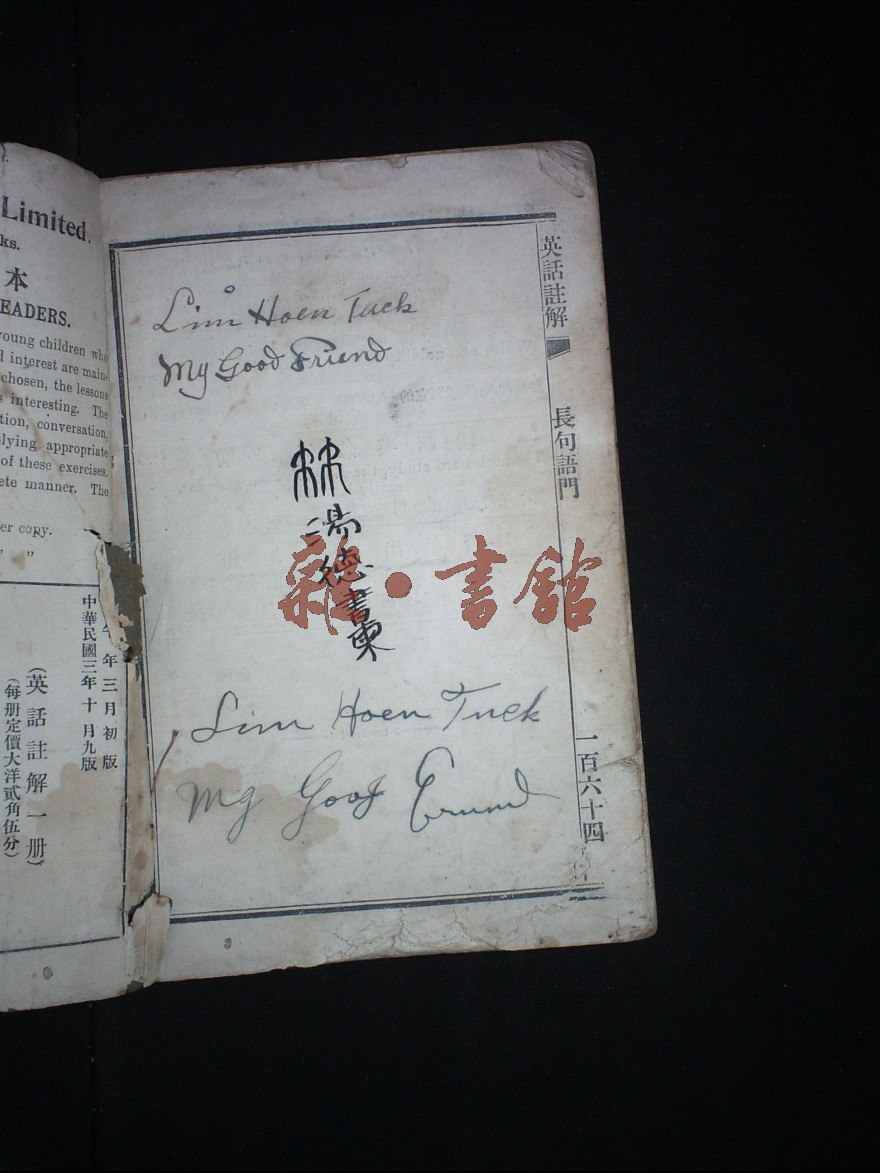 Limited.
ks.
本
EADERS.
young children who
d interest are main-
chosen, the lessons
s interesting. The
tion, conversation,
plying appropriate
of these exercises.
ete manner. The
er copy.
" "
年三月初版
中華民國三年十月九版
(英話註解一册)
(每册定價大洋貳角伍分)
Lim Hoen Tuck
My Good Friend
林
湯德書柬
雜·書館
Lim Hoen Tuck
My Good
英話註解
長句語門
一百六十四